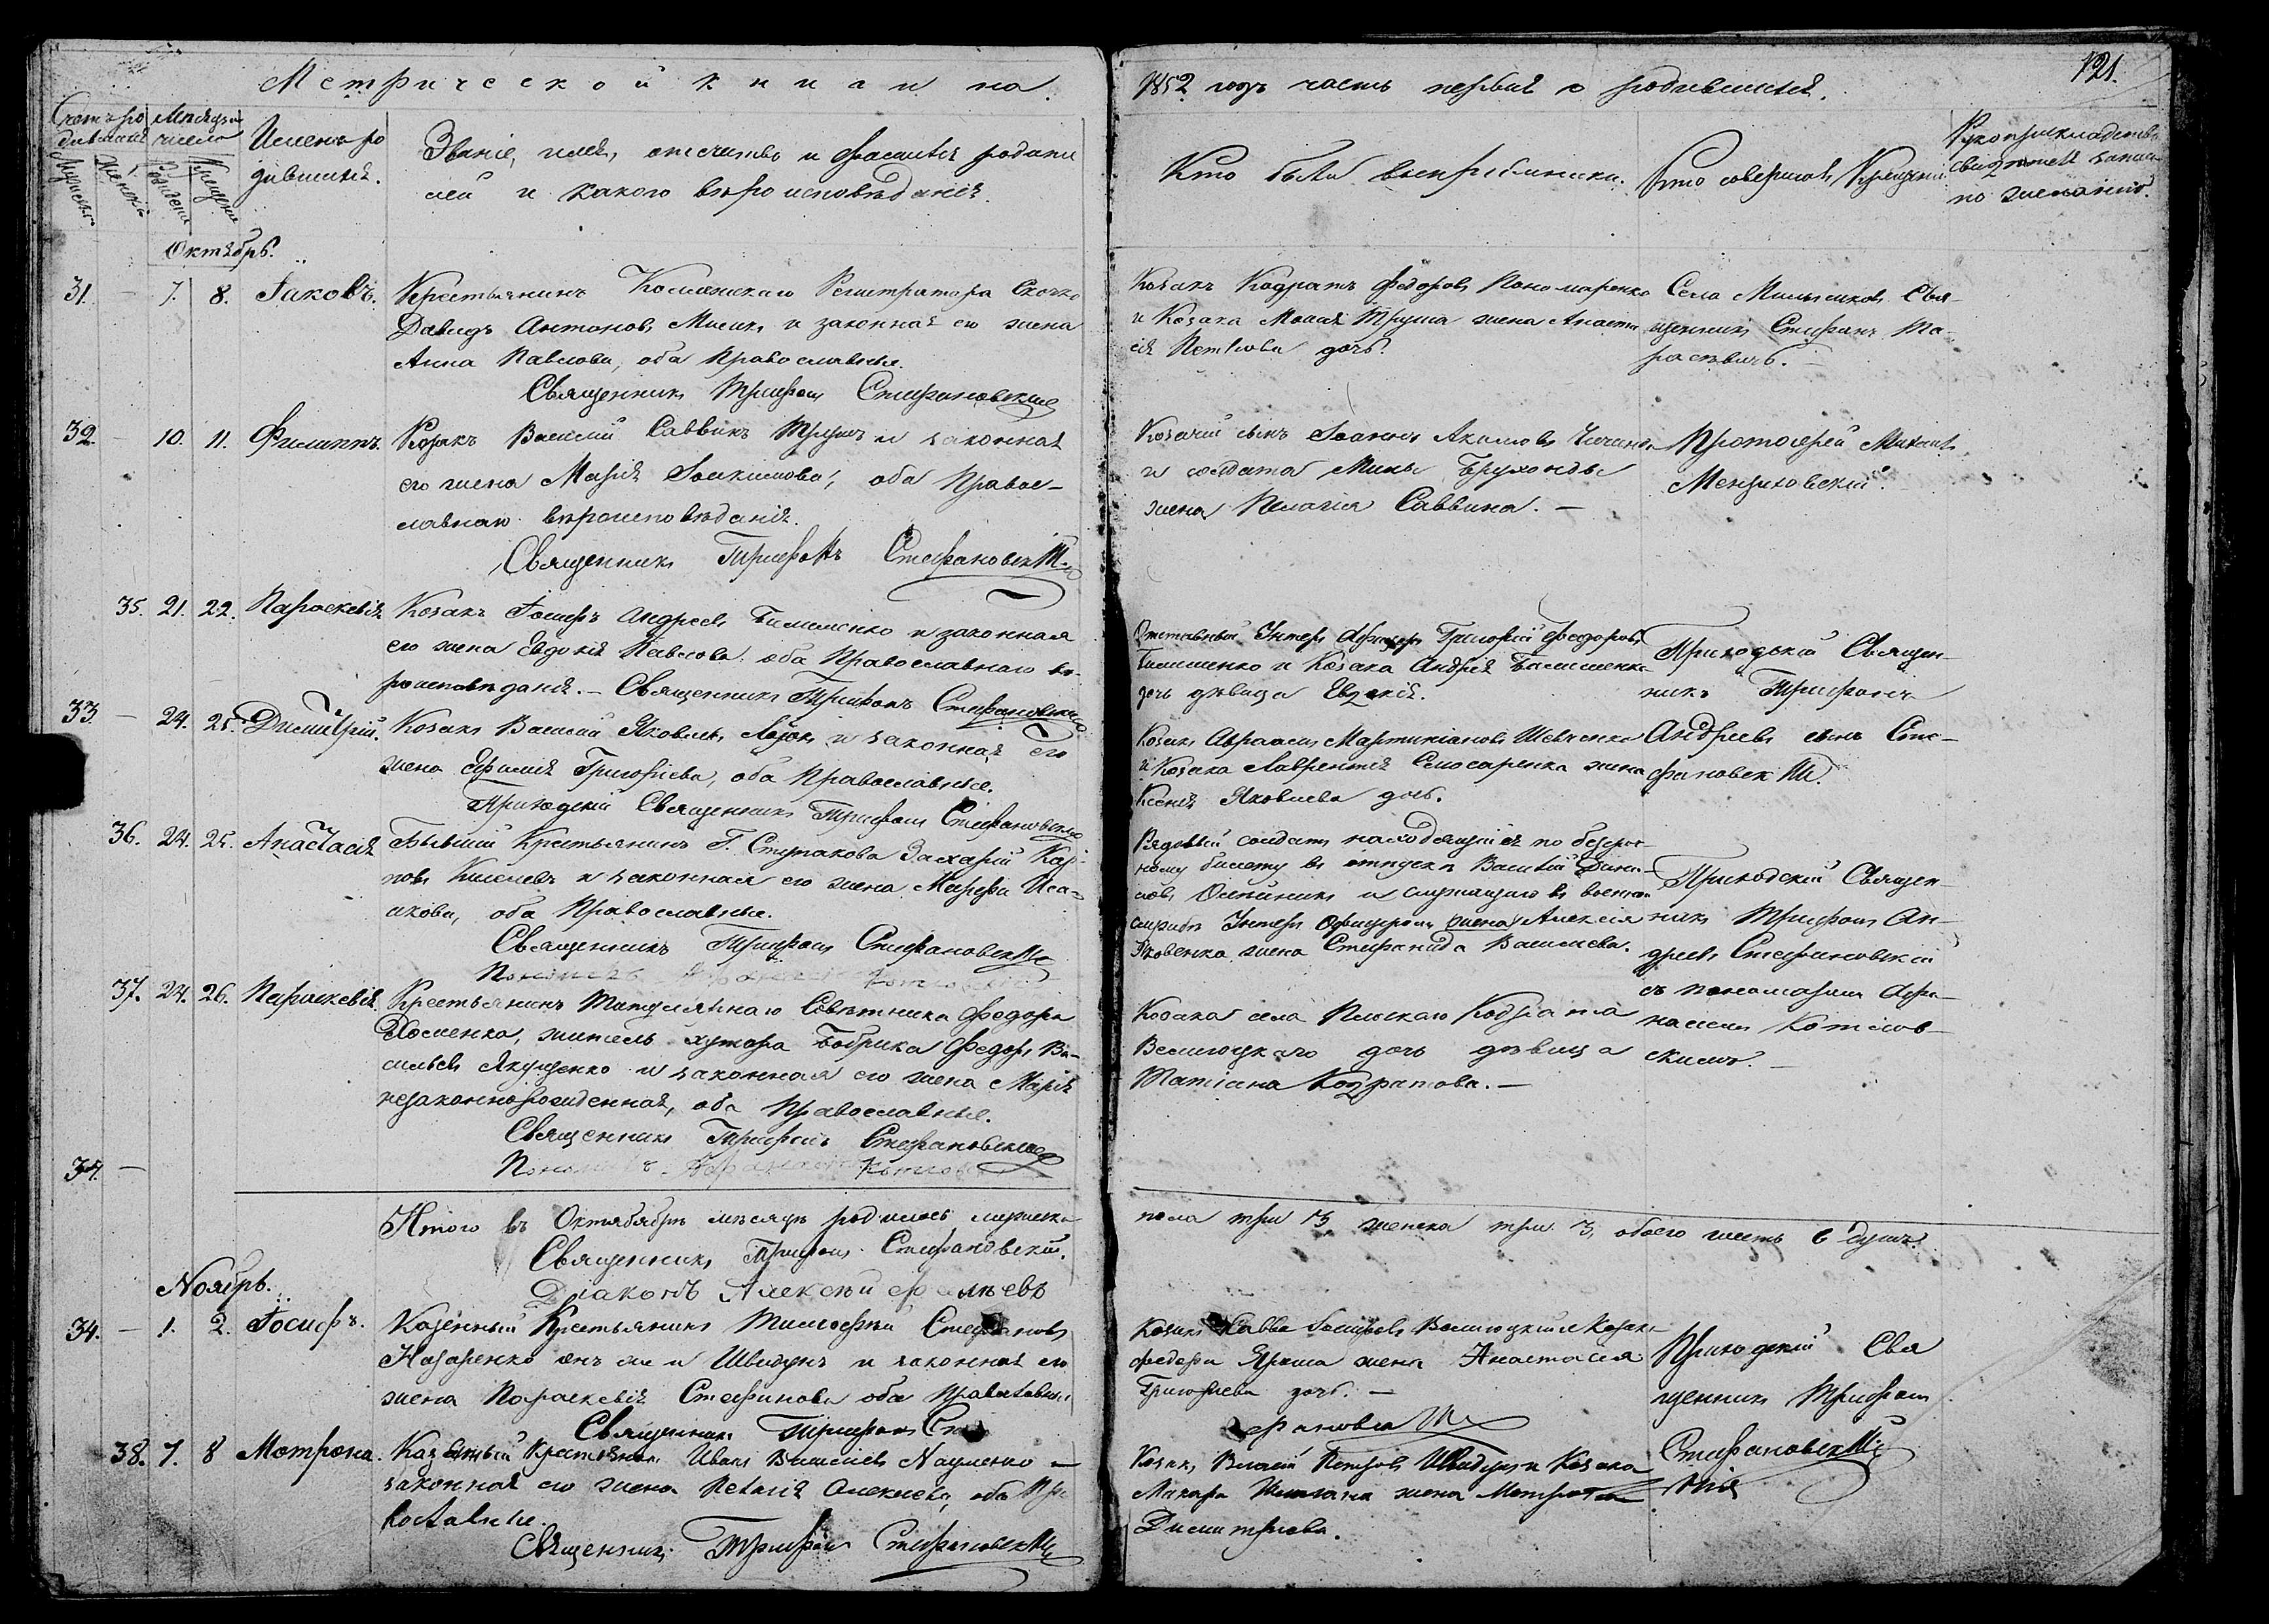 Метрической книги на
1852 годъ часть первая о родившихся.
121.
Счетъ ро
дившихся
Мѣсяцъ и
число
Имена ро
дившихся.
Званіе, имя, отечество и фамилія родите
лей и какого вѣроисповѣданія.
Кто были воспріемники.
Кто совершалъ Крещеніе
Рукоприкладство
свидѣтелей записи
по желанію.
Октябрь.
31. — 7. 8. Іаковъ.
Крестьянинъ Регистратора
Давидъ Антоновъ и законная его жена
Анна Павлова, оба Православные.
Священникъ Трифонъ Стефановскій
Козакъ Кодратъ Федоровъ Пономаренко
и Козака жена Анаста
сія Петрова дочь.
Села Свя-
щенникъ Стефанъ Та-
расевичъ. —
32. — 10. 11. Филиппъ.
Козакъ Василій Саввинъ и законная
его жена Марія Іоакимова, оба Правос-
лавнаго вѣроисповѣданія.
Священникъ Трифонъ Стефановскій
Козачій сынъ Іоаннъ Акимовъ
и солдата Мины
жена Пелагія Саввина. —
Протоіерей Михаилъ
35. 21. 22. Параскевія
Козакъ Іосифъ Андреевъ и законная
его жена Евдокія Павлова оба Православнаго вѣ-
роисповѣданія. — Священникъ Трифонъ Стефановскій
Отставный Унтеръ Офицеръ Григорій Федоровъ
и Козака Андрея
дочь дѣвица Евдокія.
Приходскій Священ-
никъ Трифонъ
Андреевъ сынъ Сте-
фановскій.
33. — 24. 25. Димитрій.
Козакъ Василій Яковлевъ и законная его
жена Григоріева, оба Православные.
Приходскій Священникъ Трифонъ Стефановскій
Козакъ Авраамъ Мартиніановъ Шевченко
и Козака Лаврентія Слюсаренка жена
Ксенія Яковлева дочь.
36. 24. 25. Анастасія
Бывшій Крестьянинъ Г. Ступакова Захарій Кар-
повъ Киселевъ и законная его жена Марфа Иса-
акова, оба Православные.
Священникъ Трифонъ Стефановскій
Рядовый солдатъ находящійся по безсроч-
ному билету въ отпуску Василій
Олейникъ и служащаго въ военной
службѣ Унтеръ Офицеромъ Алексія
Яковенка жена Стефанида Васильева.
Приходскій Священ-
никъ Трифонъ Ан-
дреевъ Стефановскій
съ пономаремъ Афа-
насіемъ Котлов-
скимъ. —
37. 24. 26. Параскевія.
Крестьянинъ Титулярнаго Совѣтника Федора
Хоменка, житель хутора Бобрика Федоръ Ва-
сильевъ Якущенко и законная его жена Марія
незаконнорожденная, оба Православные.
Священникъ Трифонъ Стефановскій
Козака села Плоскаго Кодрата
Велигоцкаго дочь дѣвица
Татіана Кодратова. —
34. —
Итого въ Октябрѣ мѣсяцѣ родилось мужеска
пола три 3, женска три 3, обоего шесть 6 душъ.
Священникъ Трифонъ Стефановскій.
Діаконъ Алексѣй
Ноябрь.
34. — 1. 2. Іосифъ.
Казенный Крестьянинъ Тимофей Стефановъ
Назаренко онъ же и Швидунъ и законная его
жена Параскевія Стефанова оба Православные
Священникъ Трифонъ Сте
фановскій
Козакъ Савва Іосифовъ Велигоцкій и Козака
Федора Яреша жена Анастасія
Григоріева дочь. —
Приходскій Свя
щенникъ Трифонъ
Стефановскій
38. 7. 8 Матрона.
Казенный Крестьянинъ Иванъ Василіевъ Науменко —
законная его жена Алексіева, оба Пра
вославные.
Священникъ Трифонъ Стефановскій
Козакъ Власій Петровъ Швидунъ и Козака
Макара жена Матрона
Димитріева.